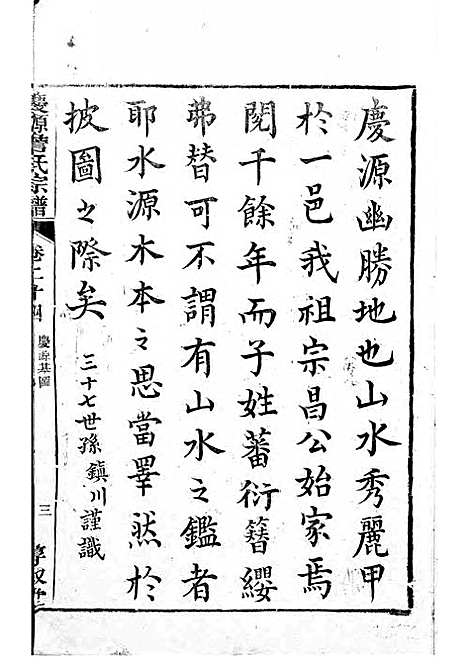 慶源幽勝地也山水秀麗甲
於一邑我祖宗昌公始家焉
閱千餘年而子姓蕃衍簪纓
弗替可不謂有山水之鑑者
耶水源木本之思當睪然於
披圖之際矣
三十七世孫鎮川謹識
慶源詹氏宗譜
卷二十四
慶源基圖
三